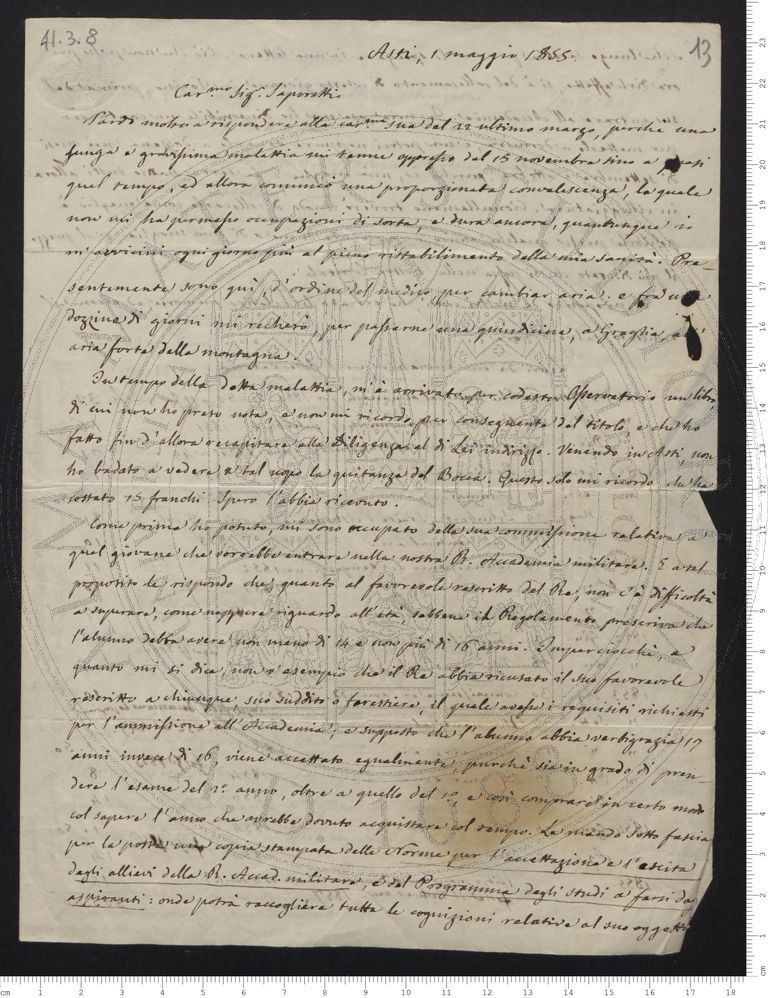 41.3.8
13
Asti, 1 maggio 1855
Car.mo Sig.r Saporetti
Tardo molto a rispondere alla car.ma sua del 22 ultimo marzo, perchè una
lunga e gravissima malattia mi tenne oppresso dal 15 novembre sino a quasi
quel tempo, ed allora cominciò una proporzionata convalescenza, la quale
non mi ha permesso occupazioni di sorta, e dura ancora, quantunque io
m'avvicini ogni giorno più al pieno ristabilimento della mia sanità. Pre-
sentemente sono quì, d'ordine del medico per cambiar aria: e fra una
dozzina di giorni mi recherò, per passarne una quindicina, a Graglia all'
aria forte della montagna.
In tempo della detta malattia, m'è arrivato per codesto Osservatorio un libro,
di cui non ho preso nota, e non mi ricordo per conseguente del titolo, e che ho
fatto fin d'allora recapitare alla Diligenza al di Lei indirizzo. Venendo in Asti, non
ho badato a vedere a tal uopo la quitanza del Bocca. Questo solo mi ricordo che ha
costato 15 franchi. Spero l'abbia ricevuto.
Come prima ho potuto, mi sono occupato della sua commissione relativa a
quel giovane che vorrebbe entrare nella nostra R. Accademia militare. E a tal
proposito le rispondo che quanto al favorevole rescritto del Re, non c'è difficoltà
a superare, come neppure riguardo all'età, sebbene il Regolamento prescriva che
l'alunno debba avere non meno di 14 e non più di 16 anni. Imperciocchè, a
quanto mi si dice, non v'è esempio che il Re abbia ricusato il suo favorevole
rescritto a chiunque, suo suddito o forestiere, il quale avesse i requisiti richiesti
per l'ammissione all'Accademia; e supposto che l'alunno abbia verbigrazia 17
anni invece di 16, viene accettato egualmente, purchè sia in grado di pren-
dere l'esame del 2.o anno, oltre a quello del 1.o, e così comprare in certo modo
col sapere l'anno che avrebbe dovuto acquistare col tempo. Le mando sotto fascia
per la posta una copia stampata delle Norme per l'accettazione e l'uscita
degli allievi della R. Accad. militare, e del Programma degli studi a farsi dagli
aspiranti: onde potrà raccogliere tutte le cognizioni relative al suo oggetto